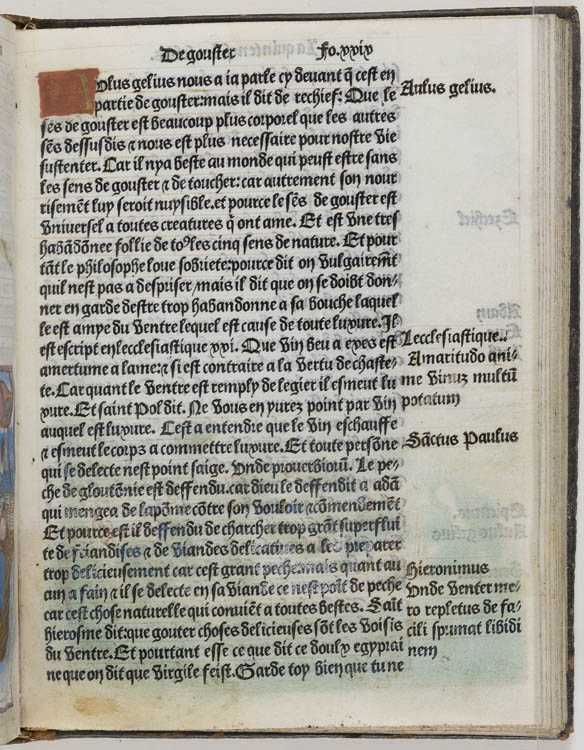 De gouster fo.xxix
Aulus gelius nous a ia parle cy deuant q̃ cest en
partie de gouster: mais il dit de rechief: Que le
sẽs de gouster est beaucoup plus corporel que les autres
sẽs dessusdis ⁊ nous est plus necessaire pour nostre vie
sustenter. Car il nya beste au monde qui peust estre sans
les sens de gouster ⁊ de toucher: car autrement son nour
risemẽt luy seroit nuysible. et pource le sẽs de gouster est
vniuersel a toutes creatures q̃ ont ame. Et est vne tres
habãdõnee follie de to⁹ les cinq sens de nature. Et pour
tãt le philosophe loue sobriete: pource dit on vulgairemẽt
quil nest pas a despriser, mais il dit que on se doibt don-
ner en garde destre trop habandonne a sa bouche laquel
le est ampe du ventre lequel est cause de toute luxure. Il
est escript en lecclesiastique xxi. Que vin beu a exes est
amertume a lame: ⁊ si est contraire a la vertu de chaste-
te. Car quant le ventre est remply de legier il esmeut lu
xure. Et saint Pol dit. Ne vous en yurez point par vin
auquel est luxure. Cest a entendre que le vin eschauffe
⁊ esmeut le corps a commettre luxure. Et toute persõne
qui se delecte nest point saige. Vnde prouerbiorũ. Le pe-
che de gloutõnie est deffendu. car dieu le deffendit a adã
qui mengea de la põme cõtre son vouloir ⁊ cõmendemẽt
Et pource est il deffendu de charcher trop grãt superflui
te de friandises ⁊ de viandes delicatiues a les preparer
trop delicieusement car cest grant peche: mais quant au
cun a fain ⁊ il se delecte en sa viande ce nest poĩt de peche
car cest chose naturelle qui conuiẽt a toutes bestes. Saĩt
hierosme dit: que gouter choses delicieuses sõt les voisis
du ventre. Et pourtant esse ce que dit ce doulx egyprai
ne que on dit que virgile feist. Garde toy bien que tu ne
Aulus gelius.
Lecclesiastique..
Amaritudo ani-
me vinuz multũ
potatum
Sãctus Paulus
Hieronimus
Vnde venter me-
ro repletus de fa-
cili spumat libidi
nem